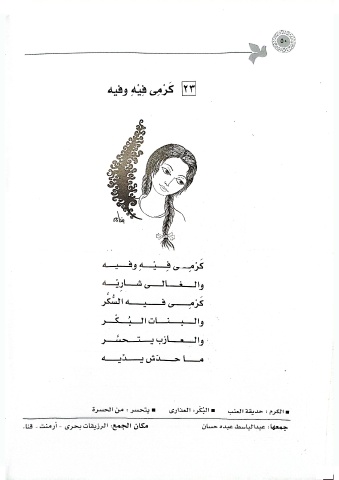 ٥٠
٢٣ كَرْمى فِيْهِ وفيه
كَرْمِـى فِـيْـهِ وفـيـه
والـغـالـى شـاريْـه
كَرْمِـى فـيـه السُّكَّر
والـبـنـات الـبُـكَـر
والـعـازب يـتـحـسَّـر
مـا حـدَش يـدِّيـه
■ الكرم : حديقة العنب ■ البُكَر، العذارى ■ يتحسر : من الحسرة
جمعها: عبدالباسط عبده حسان مكان الجمع: الرزيقات بحرى - أرمنت - قنا.